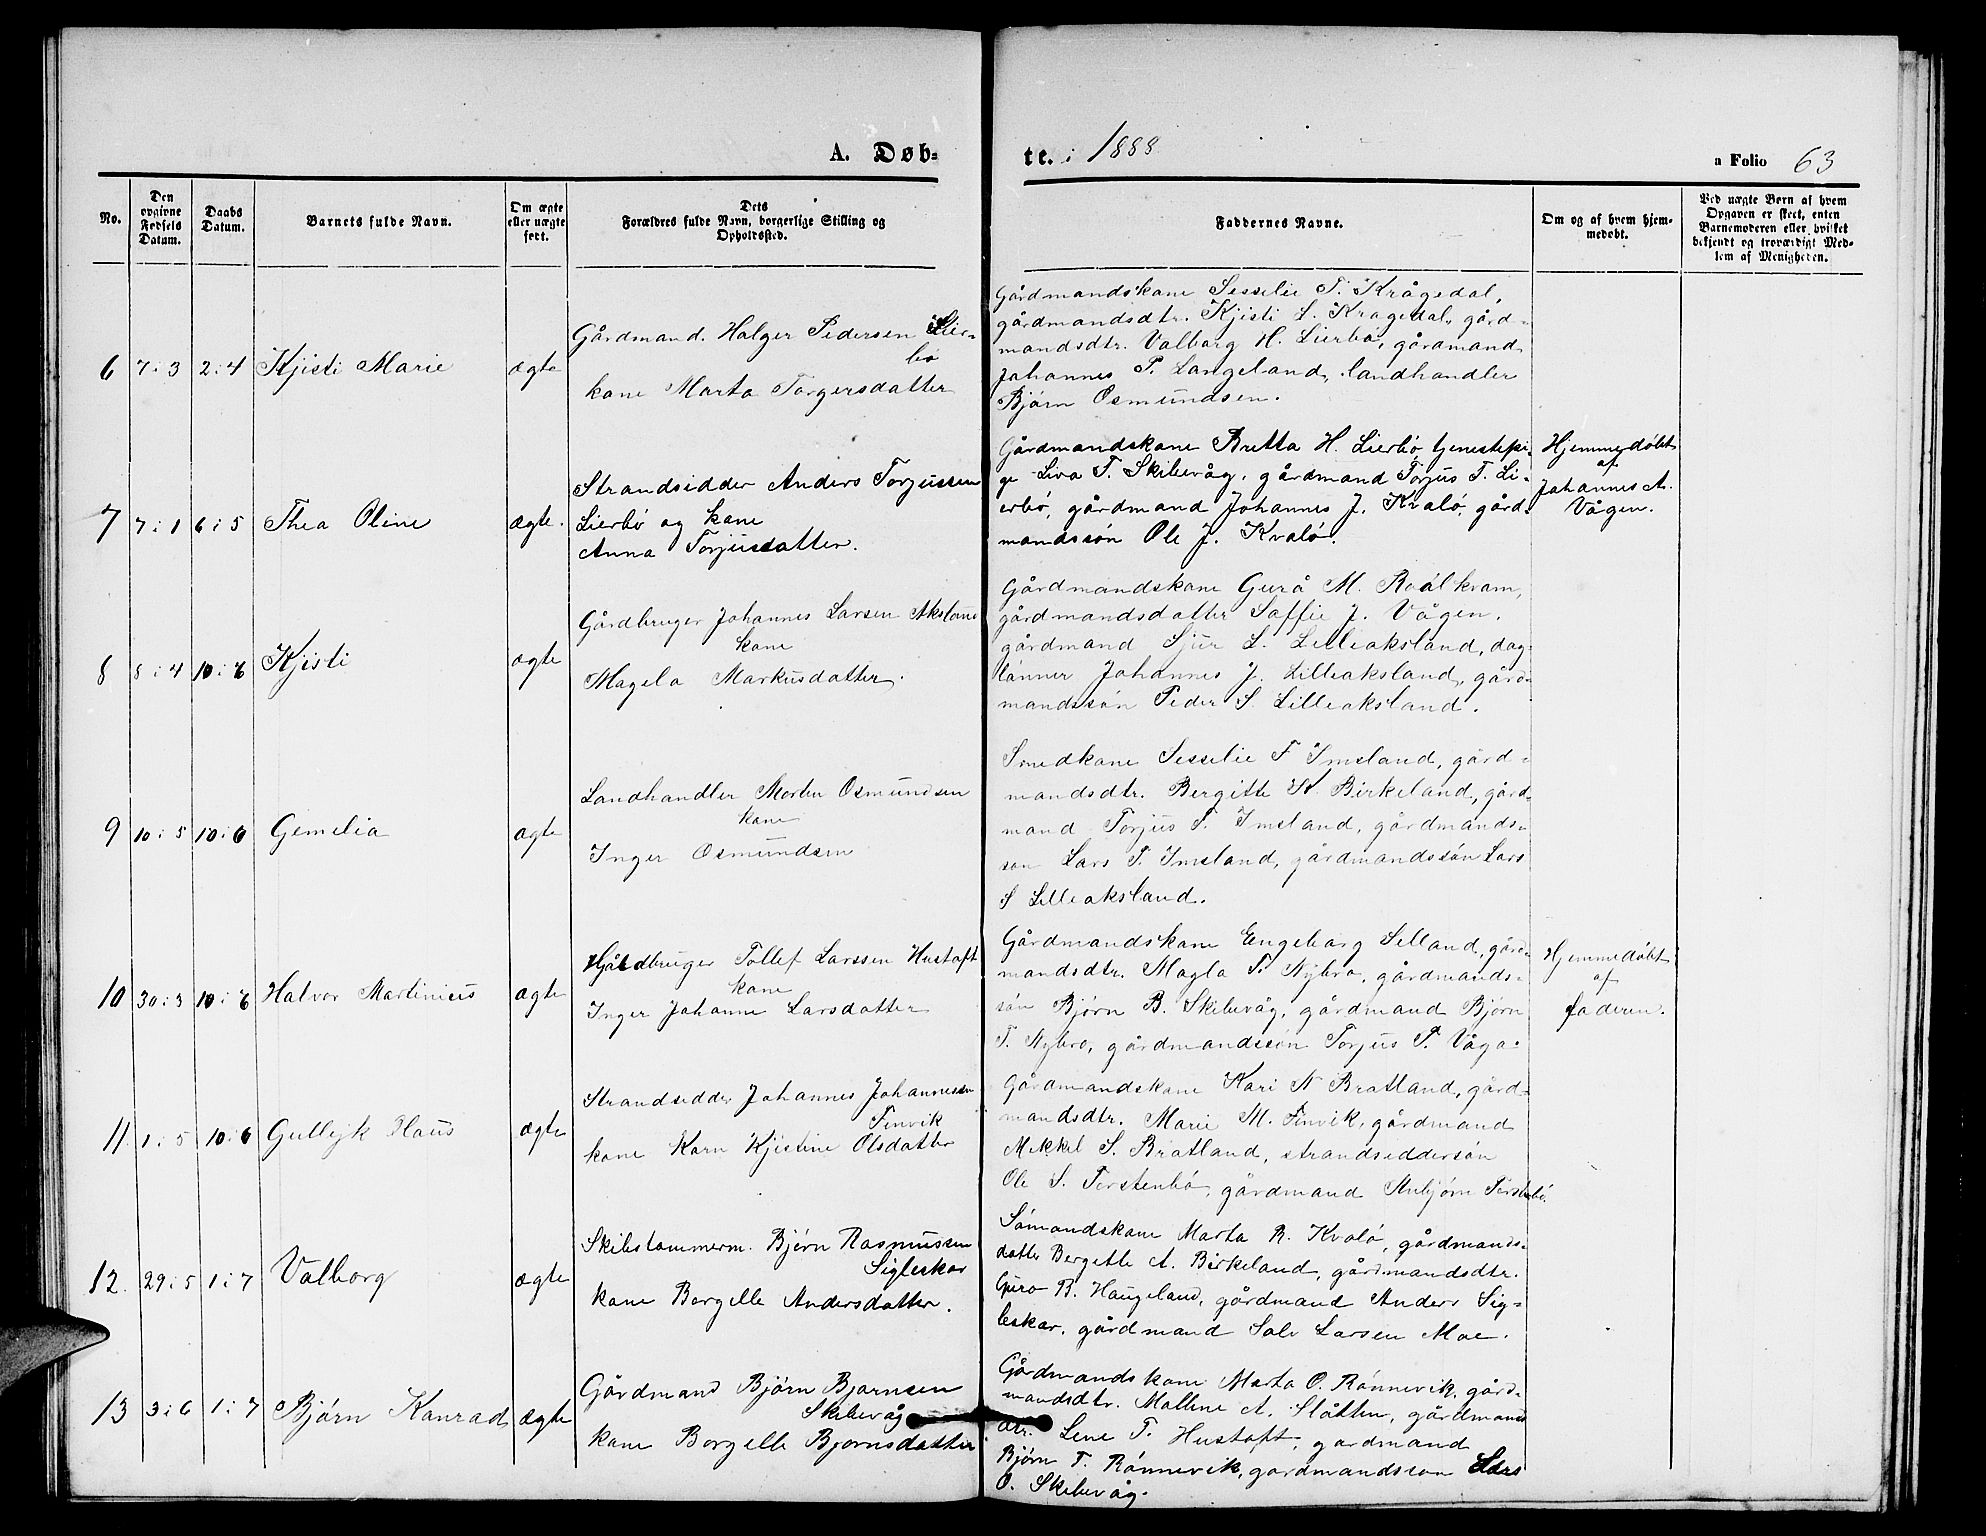 A. Døb-
te. i 1888
a Folio 63
No.
Den
opgivne
Fødsels
Datum.
Daabs
Datum.
Barnets fulde Navn.
Om ægte
eller uægte
født.
Dets
Forældres fulde Navn, borgerlige Stilling og
Opholdssted.
Faddernes Navne.
Om og af hvem hjem-
medøbt.
Ved uægte Børn af hvem
Opgaven er skeet, enten
Barnemoderen eller hvilket
bekjendt og troværdigt Med-
lem af Menigheden.
6 7:3 2:4 Kjisti Marie ægte
Gårdmand. Holger Pedersen Lier-
bø
kone Marta Torgersdatter
Gårdmandskone Sesselie T. Krågedal,
gårdmandsdtr. Kjisti L. Kragedal, gård-
mandsdtr. Valborg H. Lierbø, gårdmand
Johannes P. Langeland, landhandler
Bjørn Osmundsen.
7 7:1 6:5 Thea Oline ægte.
Strandsidder Anders Torjussen
Lierbø og kone
Anna Torjusdatter.
Gårdmandskone Britta H. Lierbø, tjenestepi-
ge Liva T. Skibevåg, gårdmand Torjus T. Li-
erbø, gårdmand Johannes J. Kvalø, gård-
mandssøn Ole J. Kvalø.
Hjemmedøbt
af
Johannes A.
Vågen.
8 8:4 10:6 Kjisti ægte
Gårdbruger Johannes Larsen Aksland
kone
Magela Markusdatter.
Gårdmandskone Gurå M. Roålkvam,
gårdmandsdatter Soffie J. Vågen,
gårdmand Sjur L. Lilleaksland, dag-
lønner Johannes J. Lilleaksland, gård-
mandssøn Peder S. Lilleaksland.
9 10:5 10:6 Gemelia ægte
Landhandler Morten Osmundsen
kone
Inger Osmundsen
Smedkone Sesselie T Imsland, gård-
mandsdtr. Bergitte K. Birkeland, gård-
mand Torjus T. Imsland, gårdmands-
søn Lars T. Imsland, gårdmandssøn Lars
S Lilleaksland.
10 30:3 10:6 Halvor Martinius ægte
Gårdbruger Tollef Larssen Hustoft
kone
Inger Johanne Larsdatter
Gårdmandskone Engeborg Selland, gård-
mandsdtr. Magla T. Nybro, gårdmands-
søn Bjørn B. Skibevåg, gårdmand Bjørn
T. Nybro, gårdmandssøn Torjus P. Våga.
Hjemmedøbt
af
faderen.
11 1:5 10:6 Gullejk Olaus ægte
Strandsedder Johannes Johannessen
Finvik
kone Karn Kjistine Olsdatter
Gårdmandskone Kari N Bratland, gård-
mandsdtr. Marie M. Finvik, gårdmand
Mekkel S. Bratland, strandseddersøn
Ole S. Terstenbø, gårdmand
12. 29:5 1:7 Valborg ægte
Skibstømmerm. Bjørn Rasmussen
Sigleskar
kone Borgelle Andersdatter.
Sømandskone Marta R. Kvalø, gårdmands-
datter Bergette A. Birkeland, gårdmandsdtr.
Guro B. Haugeland, gårdmand Anders Sig-
leskar, gårdmand Salv Larsen Moe.
13 3:6 1:7 Bjørn Konrad ægte
Gårdmand Bjørn Bjørnsen
Skibevåg
kone Borgelle Bjørnsdatter.
Gårdmandskone Marta O. Rønnevik, gård-
mandsdtr. Mallene A. Slåtten, gårdmands
dtr. Lene T. Hustoft, gardmand
Bjørn T. Rønnevik, gardmandssøn Lars
O. Skibevåg.